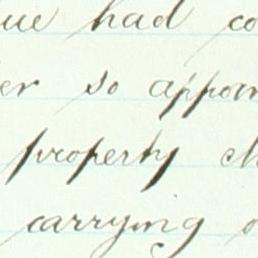 had co
so appoin
property ch
carrying